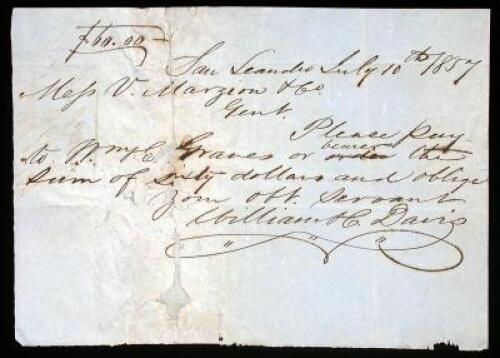 $60.00
San Leandro July 10th 1857
Mess V. Marzion & Co
Gent.
Please pay
to Wm C. Graves or bearer order the
sum of sixty dollars and oblige
Your obt. Servant
William H. Davis